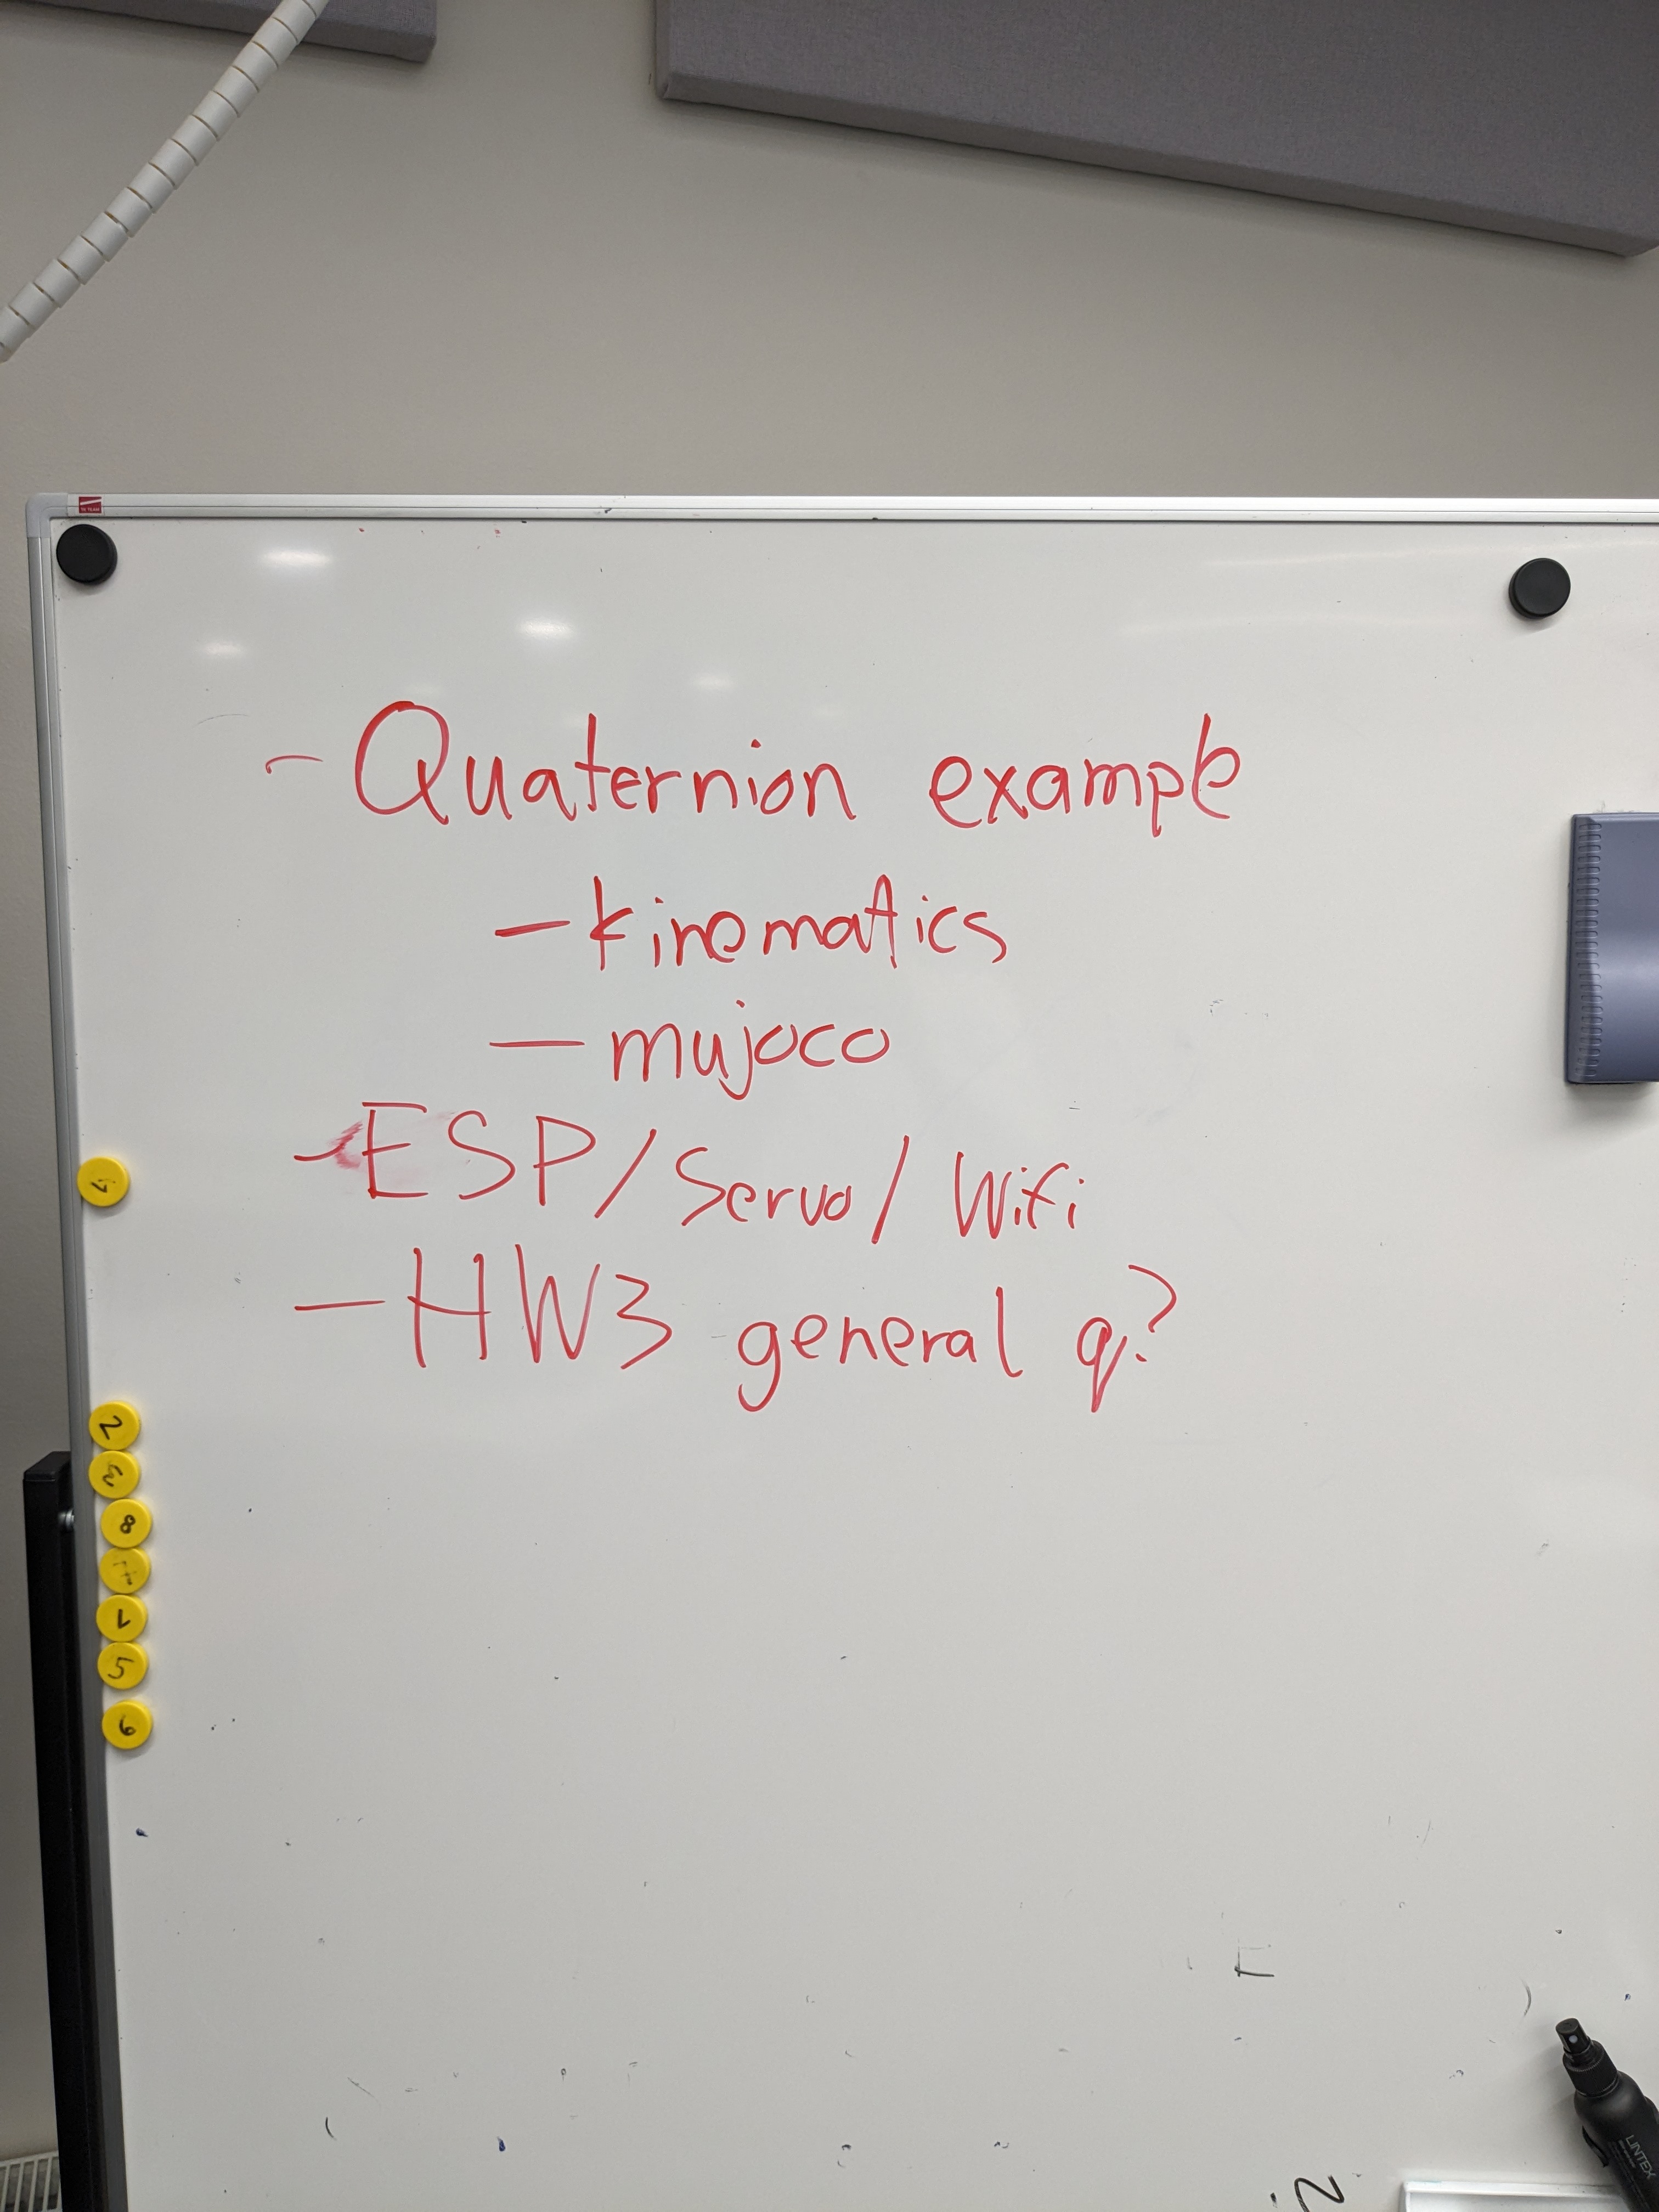 - Quaternion example
- kinematics
- mujoco
- ESP/Servo/Wifi
- HW3 general q?
2
3
8
5
6
LINTEX